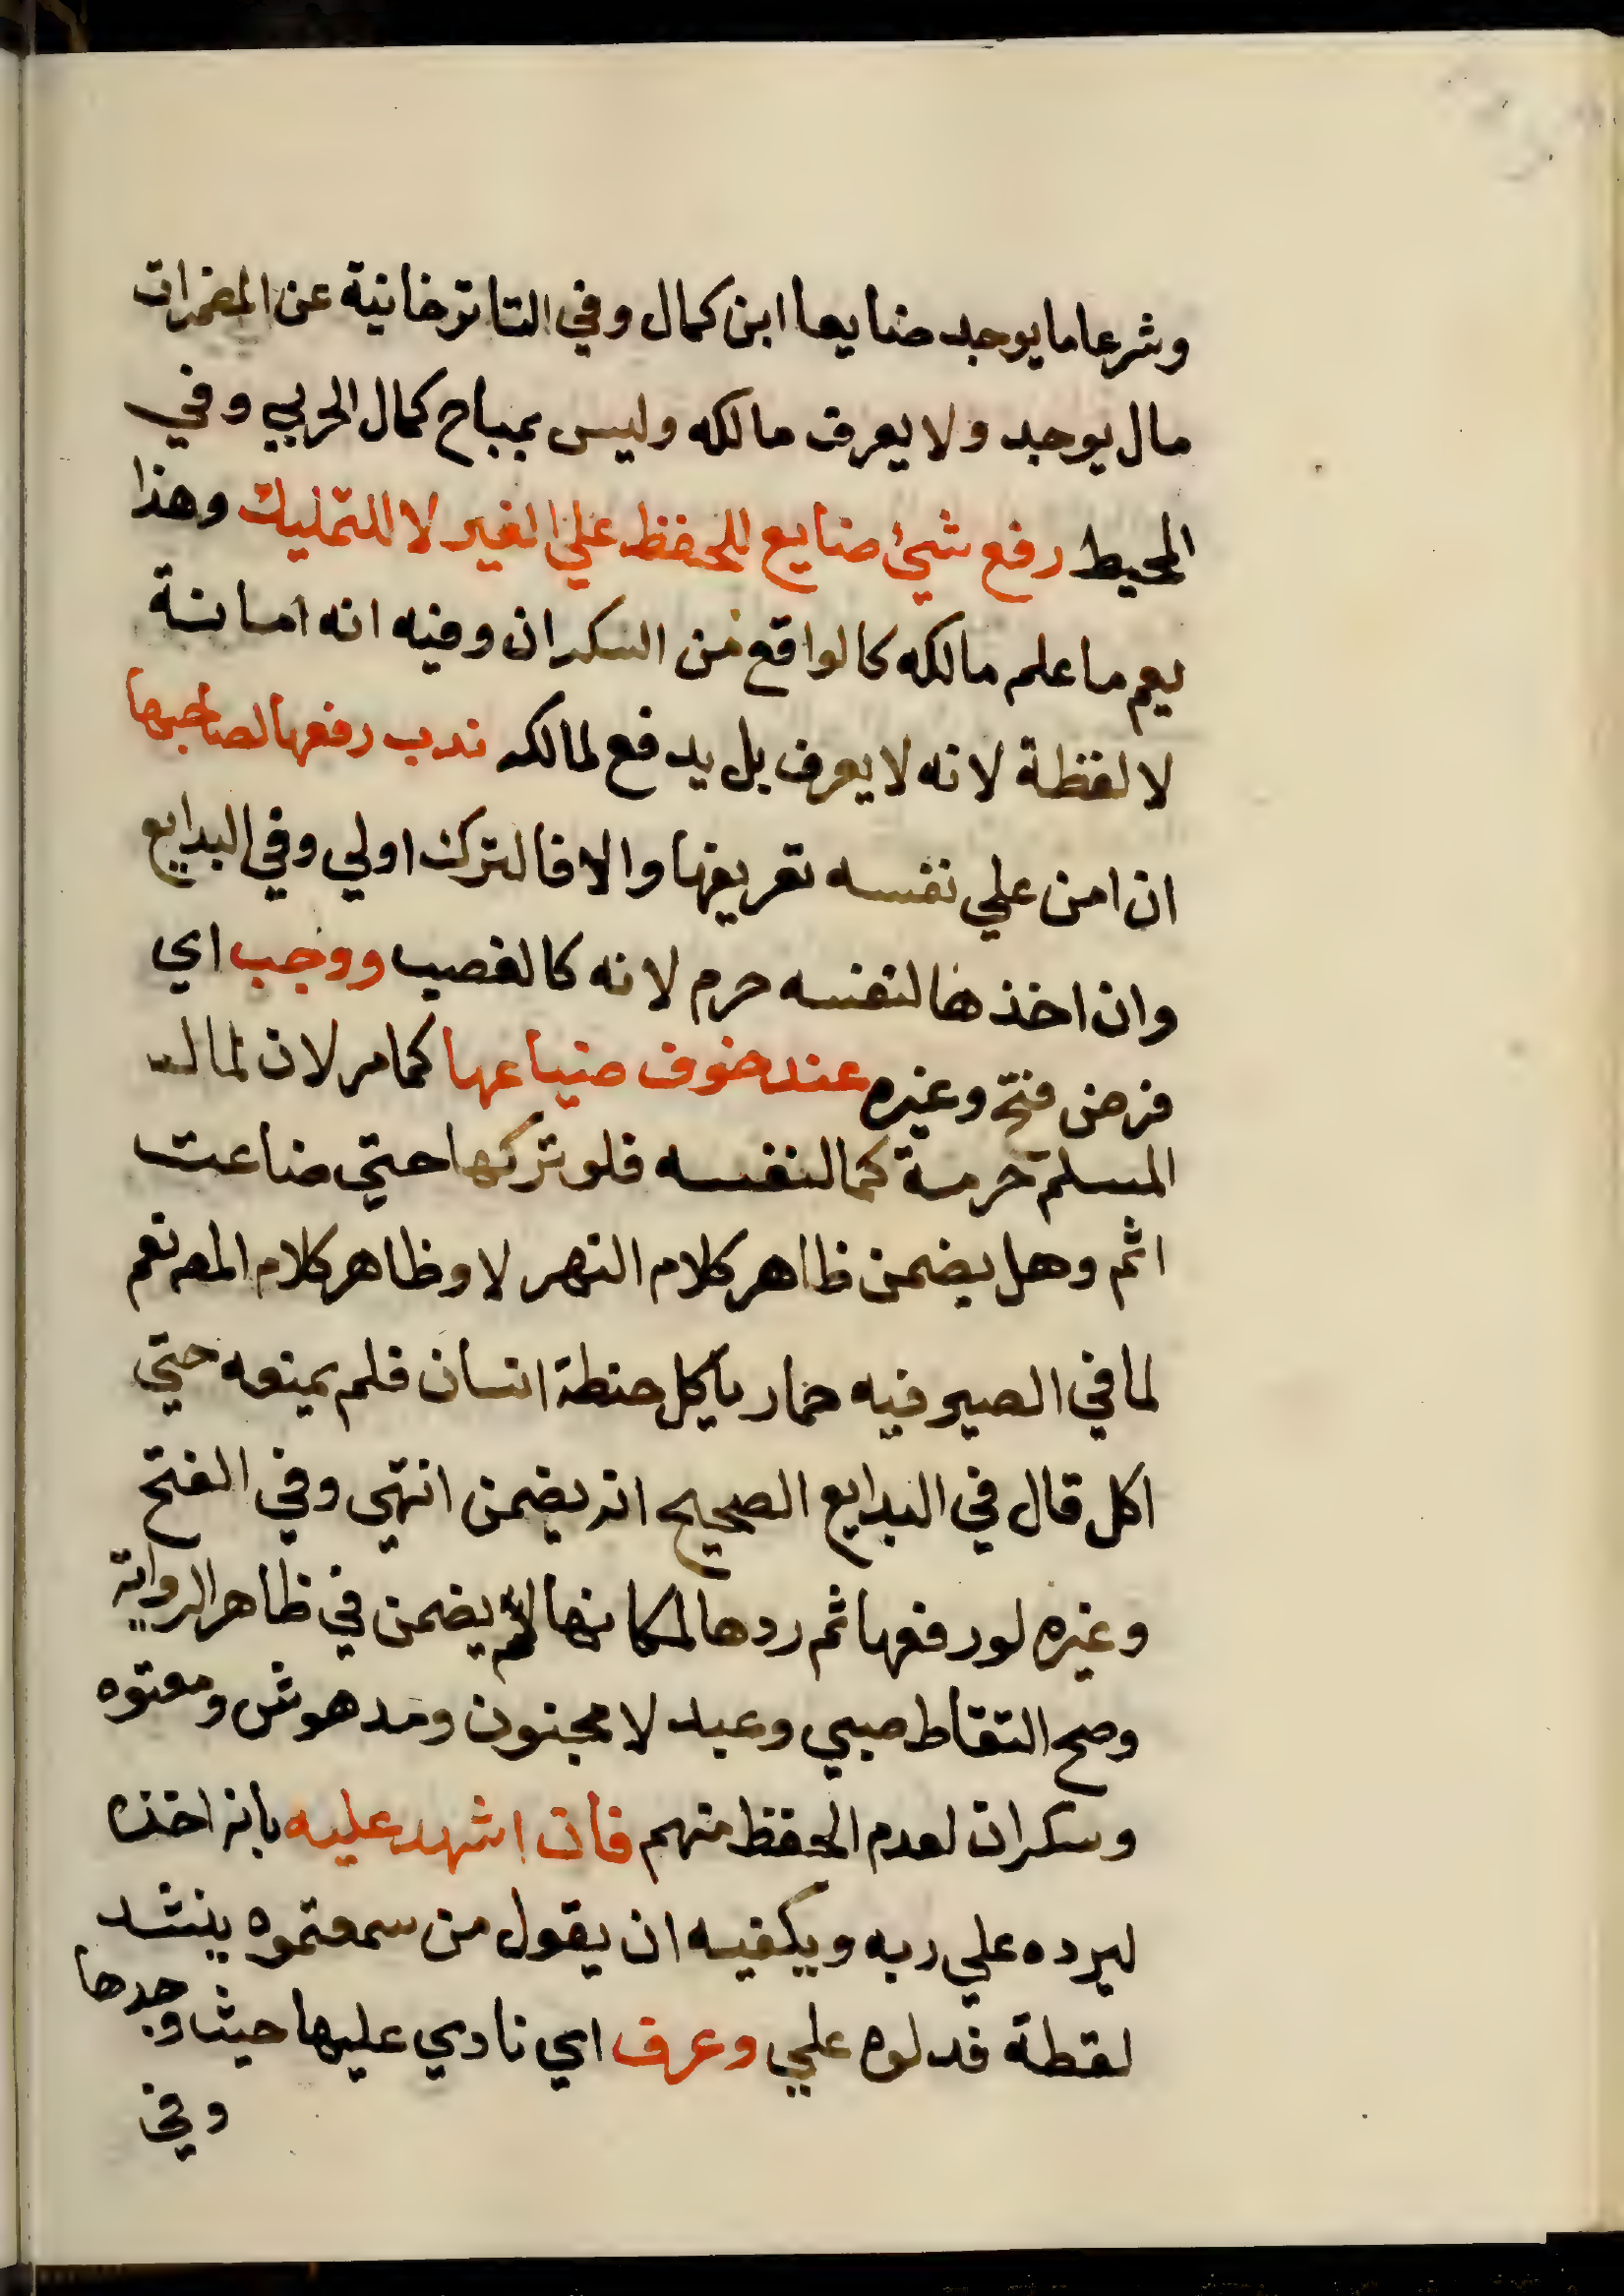 وشرعا ما يوجد ضايعا ابن كمال وفي التاترخانية عن المضمرات
مال يوجد ولا يعرف مالكه وليس بمباح كمال الحربي وفي
المحيط رفع شئ ضايع للحفظ علي الغير لا للتمليك وهذا
يعم ما علم مالكه كالواقع من السكران وفيه انه امانة
لا لقطة لانه لا يعرف بل يدفع لمالكه ندب رفعها لصاحبها
ان امن علي نفسه تعريفها والا فالترك اولي وفي البدايع
وان اخذها لنفسه حرم لانه كالغصب ووجب اي
فرض فتح وغيره عند خوف ضياعها كما مر لان لمال
المسلم حرمة كما لنفسه فلو تركها حتي ضاعت
اثم وهل يضمن ظاهر كلام النهر لا وظاهر كلام المص نعم
لما في الصيرفيه حمار ياكل حنطة انسان فلم يمنعه حتي
اكل قال في البدايع الصحيح انه يضمن انتهي وفي الفتح
وغيره لو رفعها ثم ردها لمكانها لم يضمن في ظاهر الرواية
وصح التقاط صبي وعبد لا مجنون ومدهوش ومعتوه
وسكران لعدم الحفظ منهم فان اشهد عليه بانه اخذه
ليرده علي ربه ويكفيه ان يقول من سمعتموه ينشد
لقطة فدلوه علي وعرف اي نادي عليها حيث وجدها
وفي